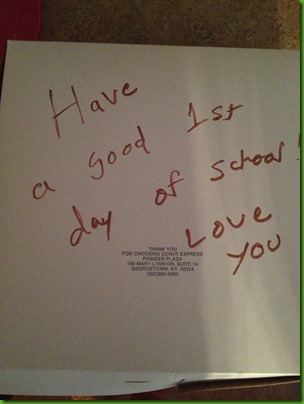 Have
a good 1st
day of school!
Love
you
THANK YOU
FOR CHOOSING DONUT EXPRESS
PIONEER PLAZA
100 MARY LYNN DR. SUITE 14
GEORGETOWN, KY 40324